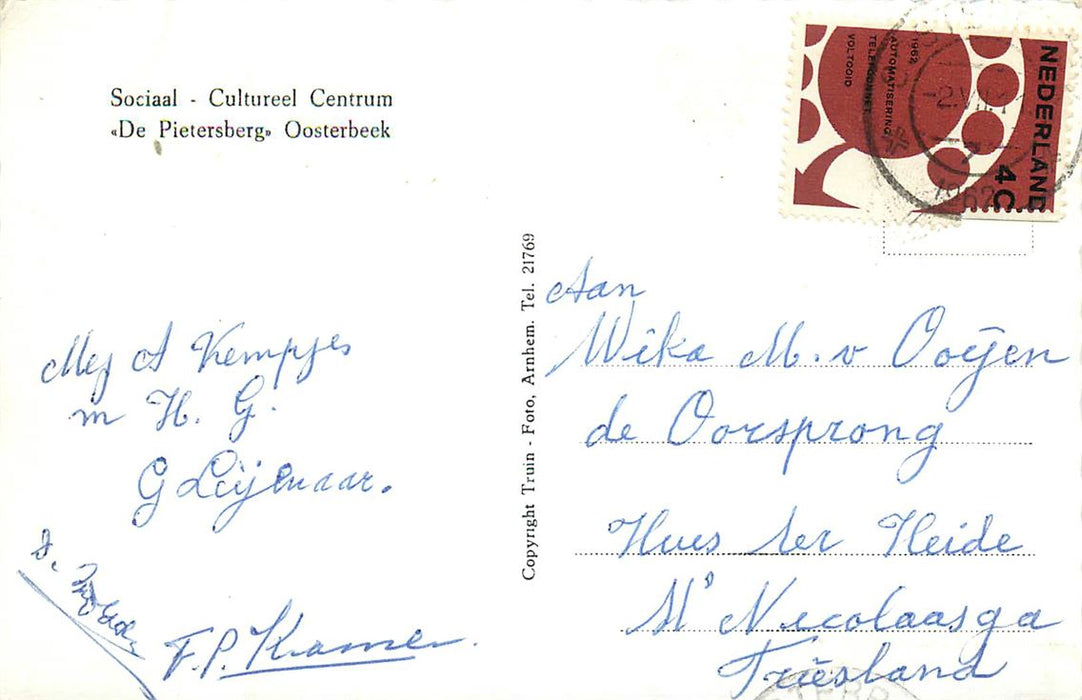 Sociaal - Cultureel Centrum
«De Pietersberg» Oosterbeek
Mej A Kempjes
m H. G.
G Leijenaar.
F.P. Kramer.
Copyright Truin - Foto, Arnhem. Tel. 21769
NEDERLAND
4C
1962
AUTOMATISERING
TELEFOONNET
VOLTOOID
1962
Aan
Wika M. v Ooijen
de Oorsprong
Huis ter Heide
St Nicolaasga
Friesland